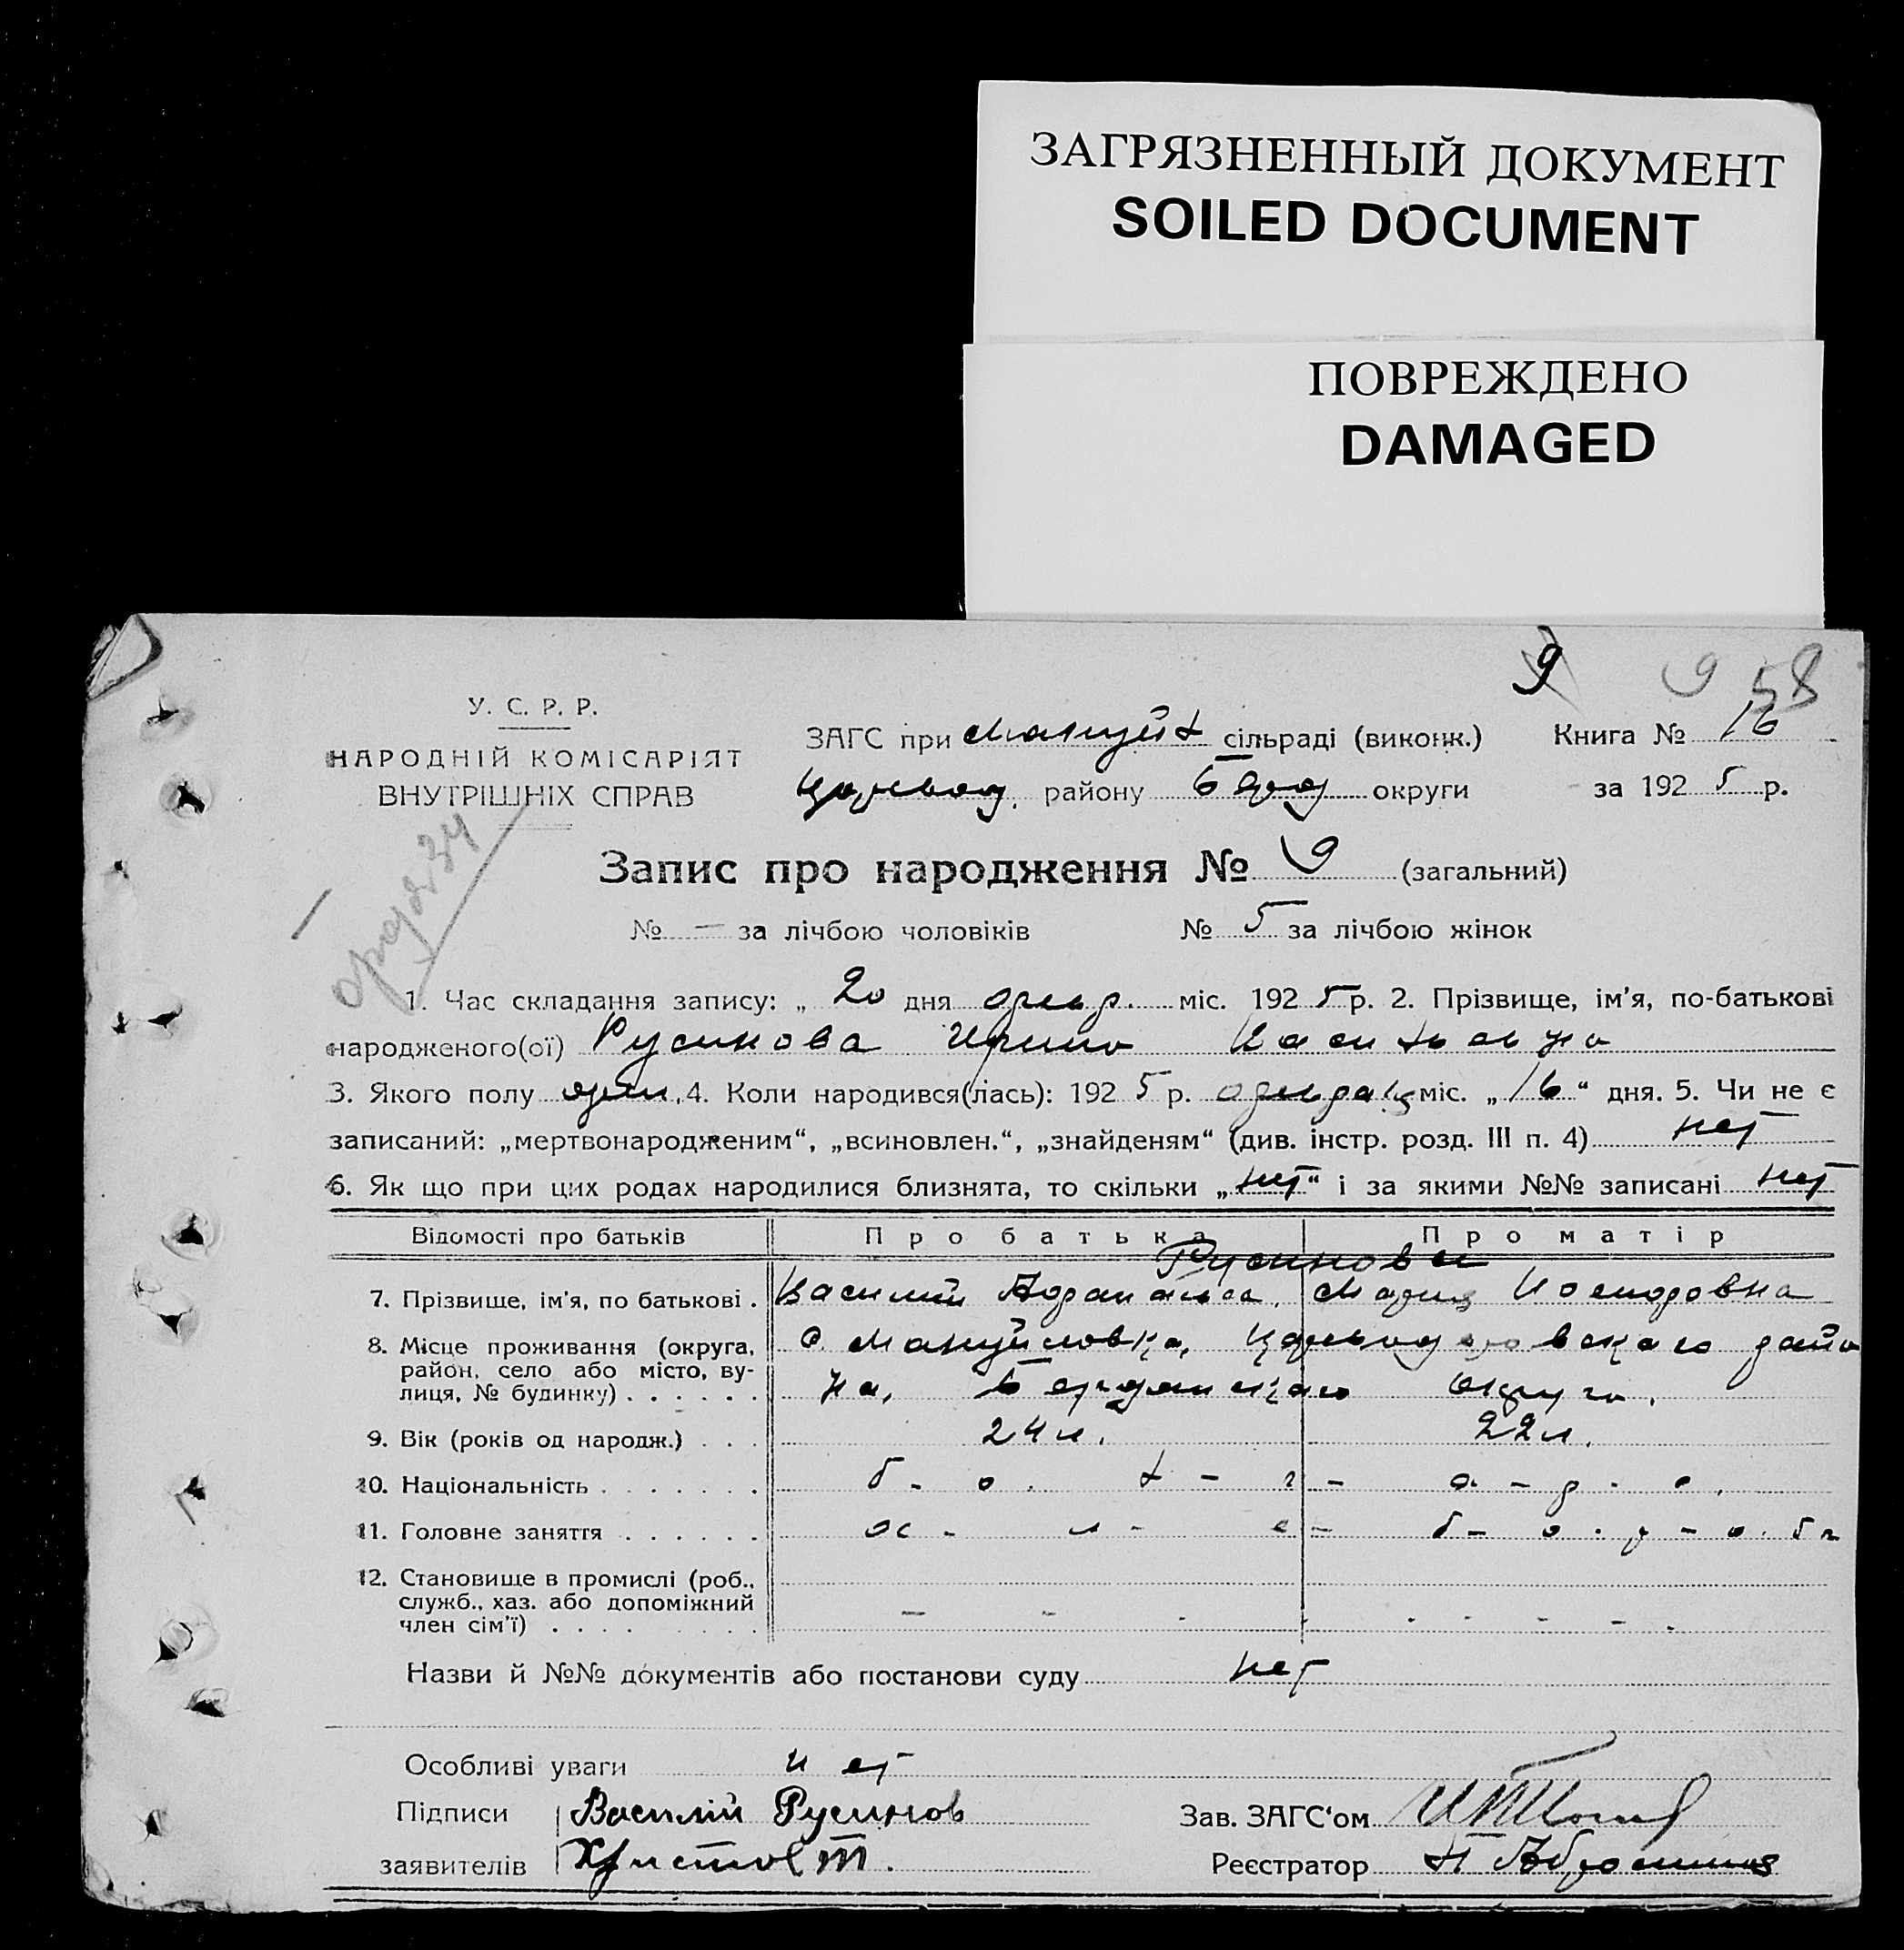 ЗАГРЯЗНЕННЫЙ ДОКУМЕНТ
SOILED DOCUMENT
ПОВРЕЖДЕНО
DAMAGED
9 9 58
У. С. Р. Р.
НАРОДНІЙ КОМІСАРІЯТ
ВНУТРІШНІХ СПРАВ
ЗАГС при Мануйл сільраді (виконк.) Книга № 16
району округи за 192 5 р.
Запис про народження № 9 (загальний)
№ – за лічбою чоловіків № 5 за лічбою жінок
1. Час складання запису: „ 20 дня міс. 192 5 р. 2. Прізвище, ім’я, по-батькові
народженого(ої) Русинова Ирина Васильевна
3. Якого полу 4. Коли народився(лась): 192 5 р. міс. „ 16 “ дня. 5. Чи не є
записаний: „мертвонародженим“, „всиновлен.“, „знайденям“ (див. інстр. розд. III п. 4) нет
6. Як що при цих родах народилися близнята, то скільки „ нет “ і за якими №№ записані нет
Відомості про батьків Про батька Про матір
Русиновы
7. Прізвище, ім’я, по батькові . Василий Мария
8. Місце проживання (округа, район, село або місто, вулиця, № будинку) . . . . . . С. Мануйловка, райо
на, Бердянскаго округа.
9. Вік (років од народж.) . . . 24 л. 22 л.
10. Національність . . . . . . . б - о . л - г - а - р - е .
11. Головне заняття . . . . . . хл - е - б - о . р - о . б
12. Становище в промислі (роб., служб., хаз. або допоміжний член сім’ї) . . . . – - . . - - - - .
Назви й №№ документів або постанови суду нет
Особливі уваги нет
Підписи Василий Русинов Зав. ЗАГС‘ом
заявителів Христов Т. Реєстратор